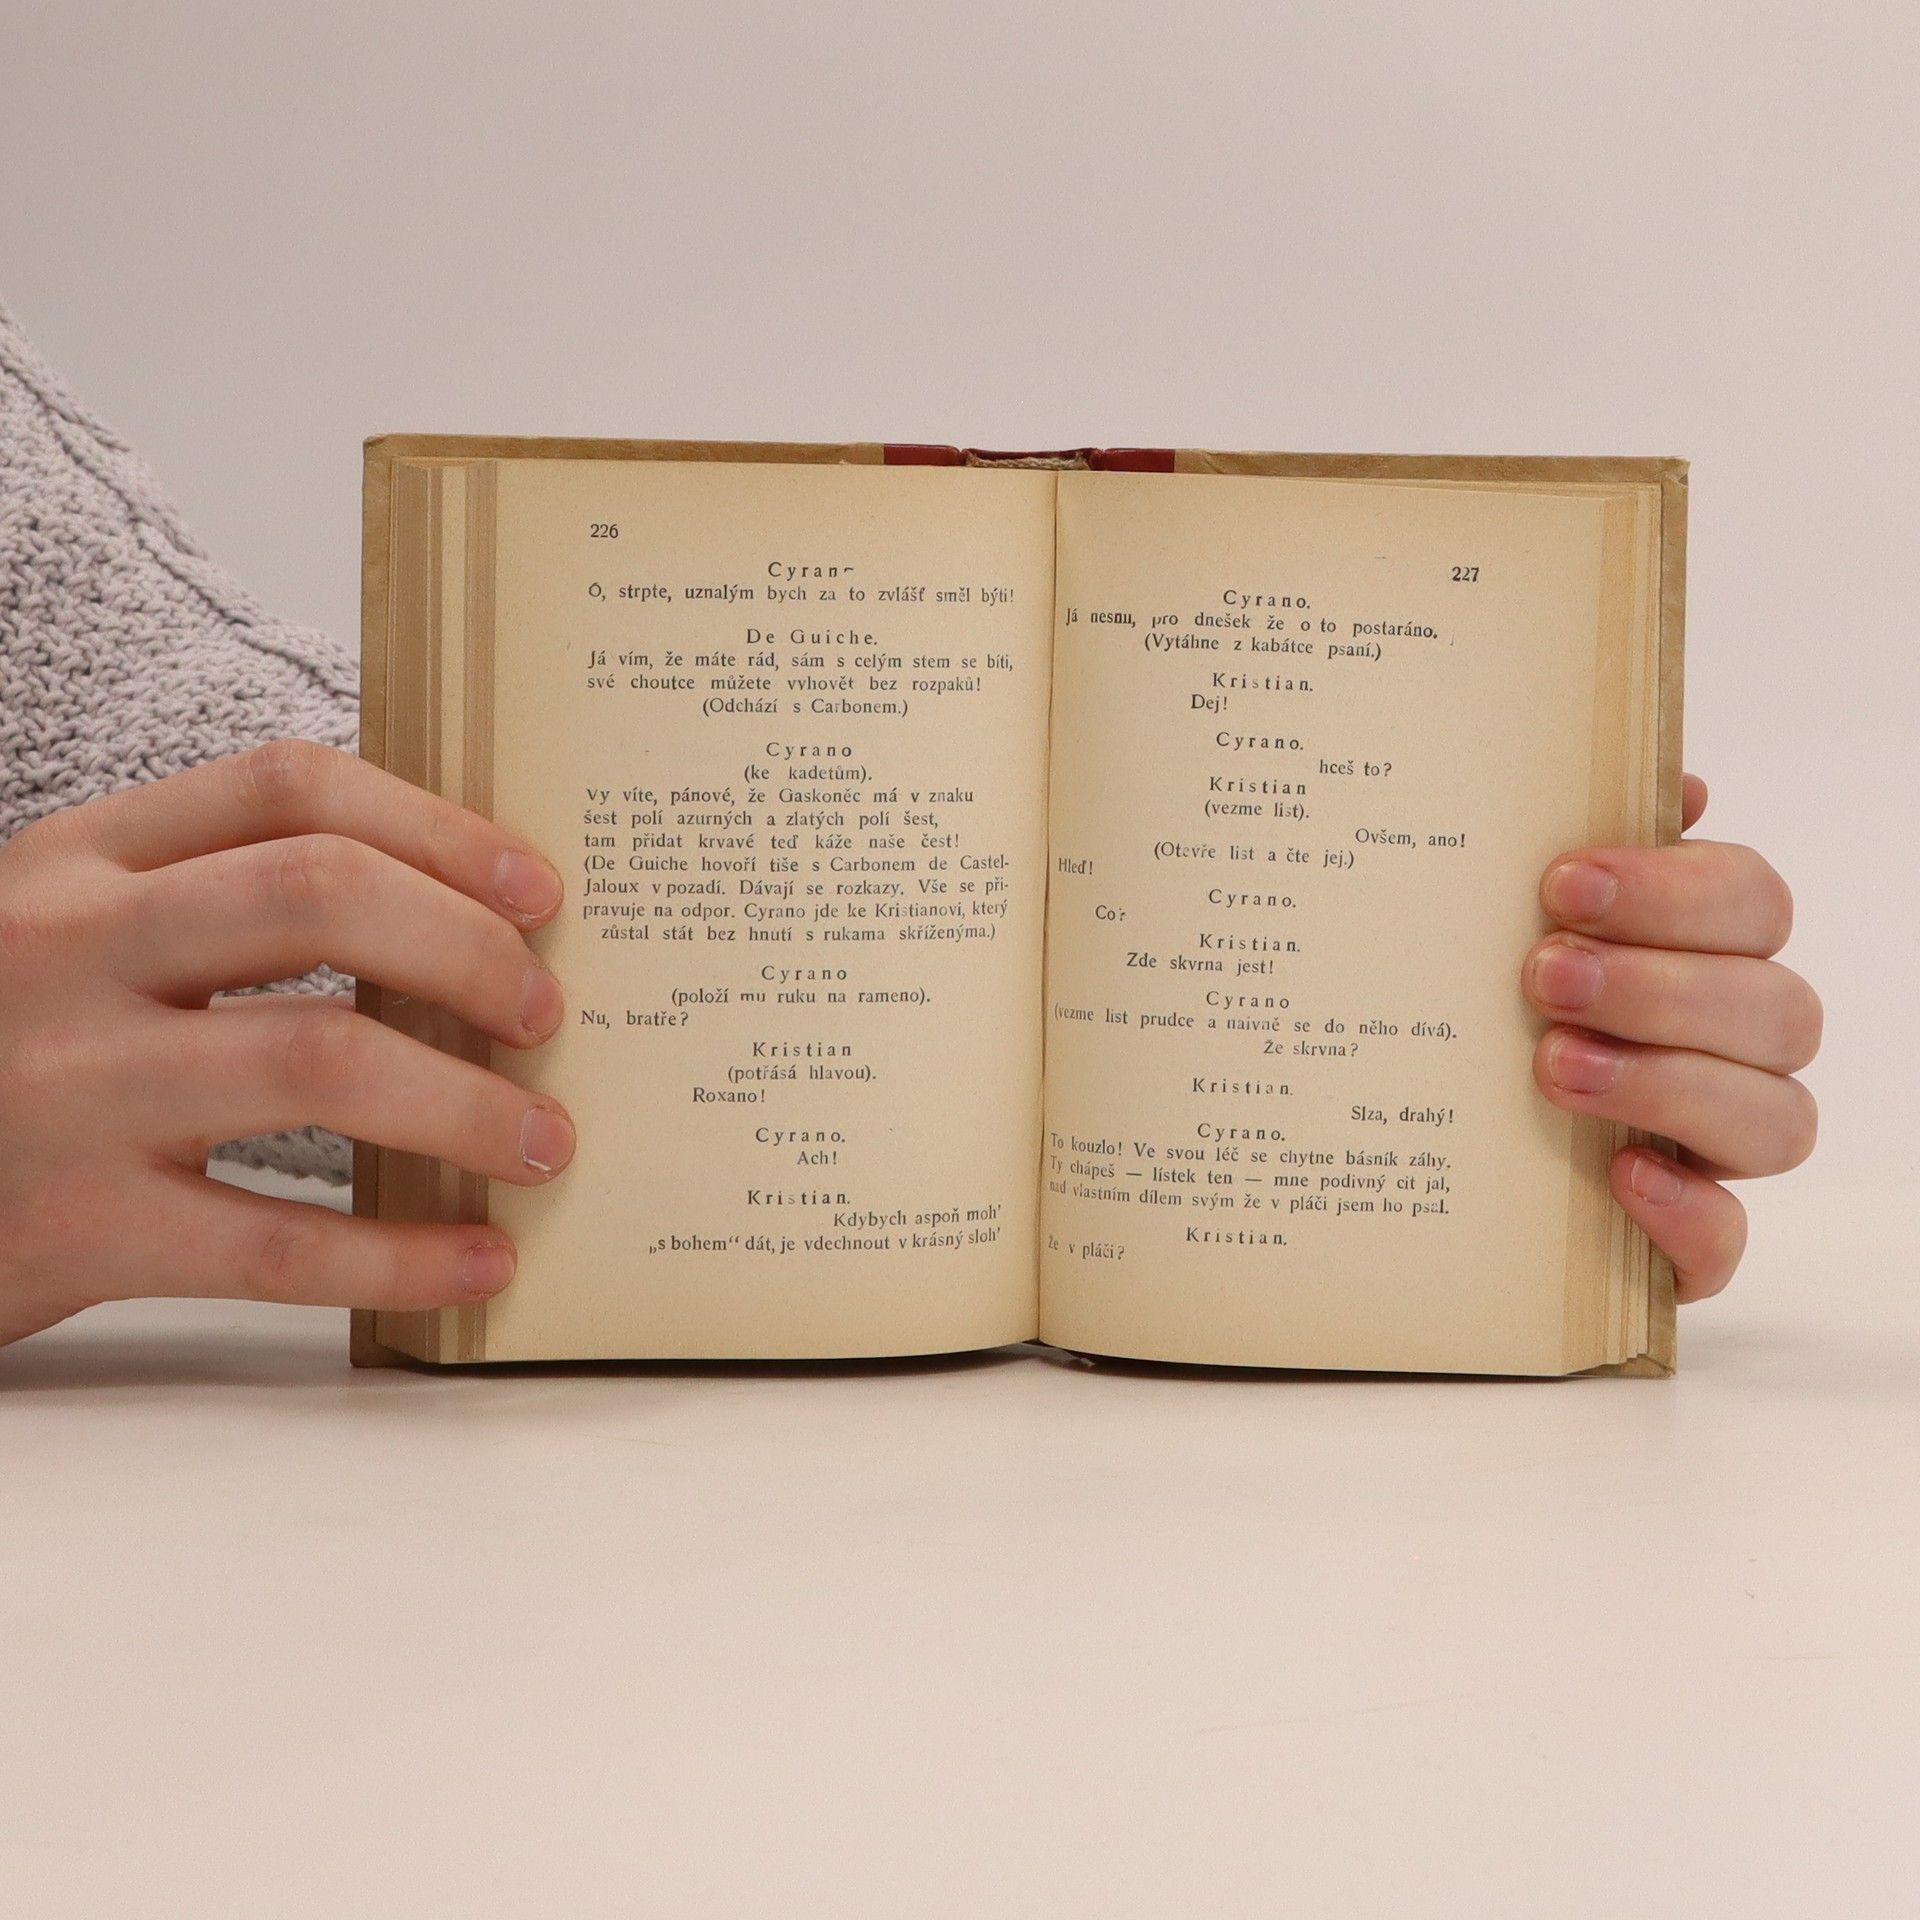 226
Cyrano
Ó, strpte, uznalým bych za to zvlášť směl býti!
De Guiche.
Já vím, že máte rád, sám s celým stem se bíti,
své choutce můžete vyhovět bez rozpaků!
(Odchází s Carbonem.)
Cyrano
(ke kadetům).
Vy víte, pánové, že Gaskoněc má v znaku
šest polí azurných a zlatých polí šest,
tam přidat krvavé teď káže naše čest!
(De Guiche hovoří tiše s Carbonem de Castel-
Jaloux v pozadí. Dávají se rozkazy. Vše se při-
pravuje na odpor. Cyrano jde ke Kristianovi, který
zůstal stát bez hnutí s rukama skříženýma.)
Cyrano
(položí mu ruku na rameno).
Nu, bratře?
Kristian
(potřásá hlavou).
Roxano!
Cyrano.
Ach!
Kristian.
Kdybych aspoň moh'
„s bohem“ dát, je vdechnout v krásný sloh'
227
Cyrano.
Já nesnu, pro dnešek že o to postaráno.
(Vytáhne z kabátce psaní.)
Kristian.
Dej!
Cyrano.
hceš to?
Kristian
(vezme list).
Ovšem, ano!
(Otevře list a čte jej.)
Hleď!
Cyrano.
Co?
Kristian.
Zde skvrna jest!
Cyrano
(vezme list prudce a naivně se do něho dívá).
Že skrvna?
Kristian.
Slza, drahý!
Cyrano.
To kouzlo! Ve svou léč se chytne básník záhy.
Ty chápeš — lístek ten — mne podivný cit jal,
nad vlastním dílem svým že v pláči jsem ho psal.
Kristian.
Že v pláči?